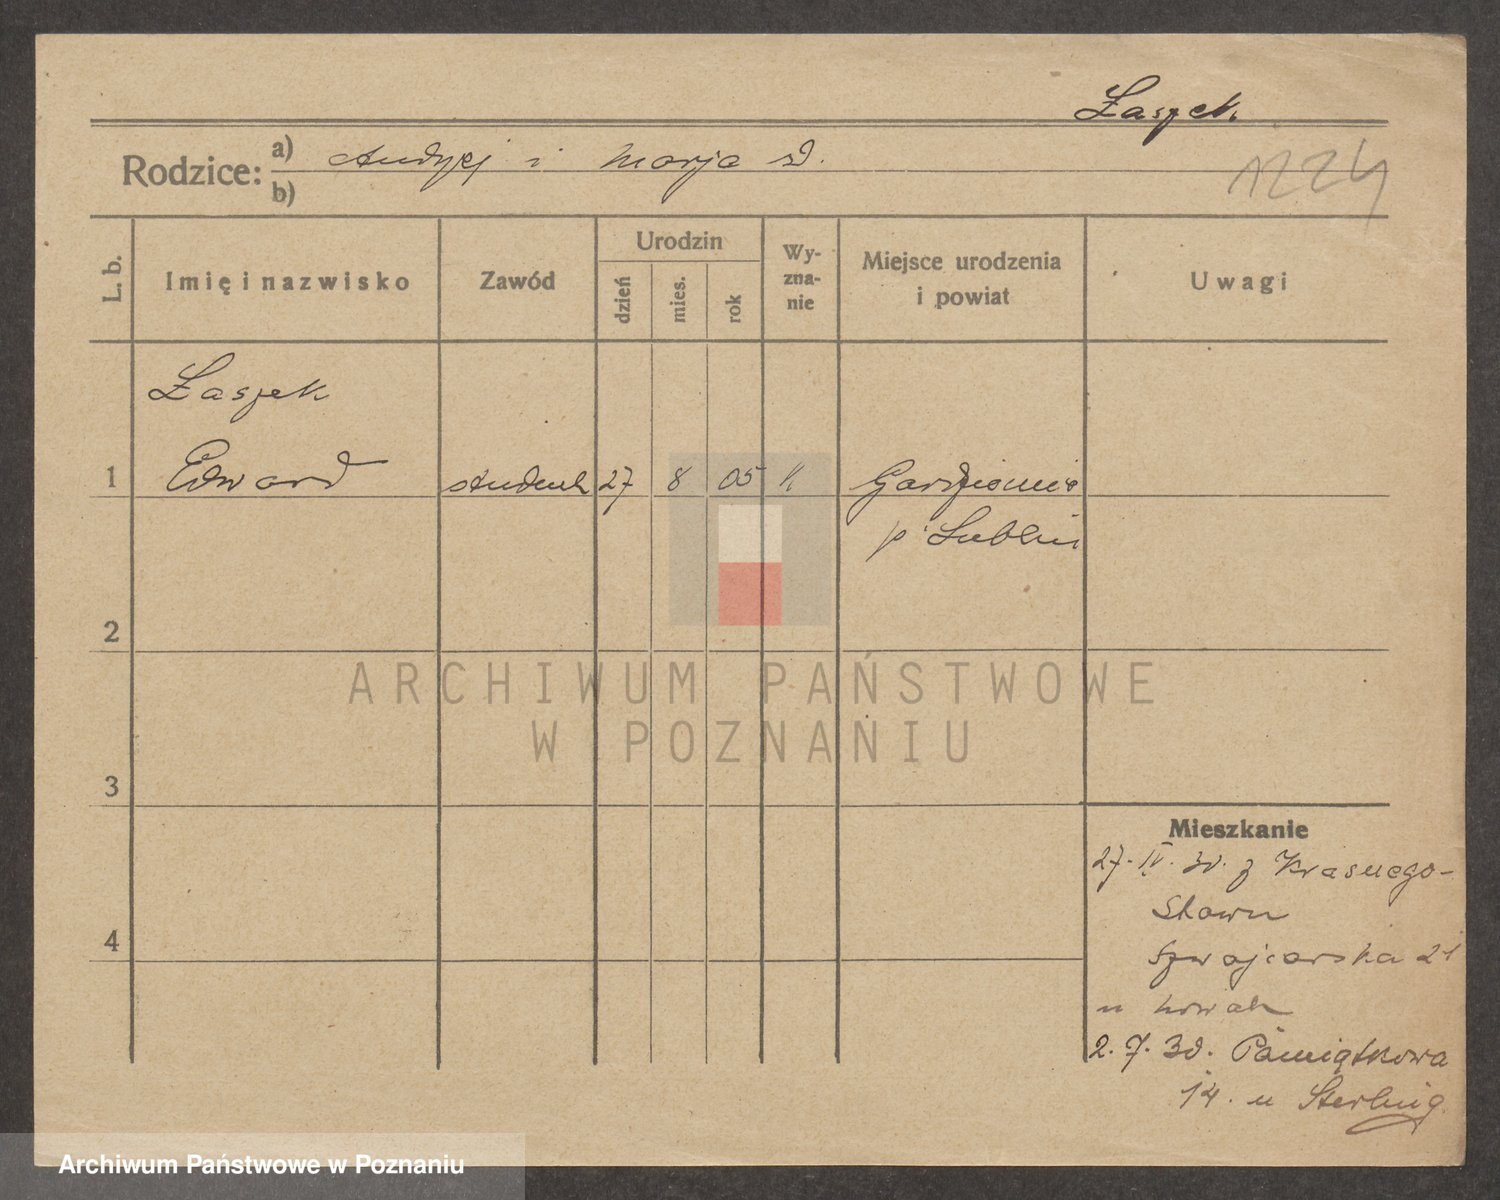 Łaszek.
Rodzice: a) Andrzej i Marja
b)
1224
L. b.
Imię i nazwisko
Zawód
Urodzin
dzień
mies.
rok
Wy-
zna-
nie
Miejsce urodzenia
i powiat
Uwagi
Łaszek
1 Edward student 27 8 05 k
p. Lublin
2
3
4
Mieszkanie
27. IV. 30. z Krasnego-
Stawu
Szwajcarska 21
u Nowak
2. 7. 30. Pamiątkowa
14. u Sterling
ARCHIWUM PAŃSTWOWE
W POZNANIU
Archiwum Państwowe w Poznaniu